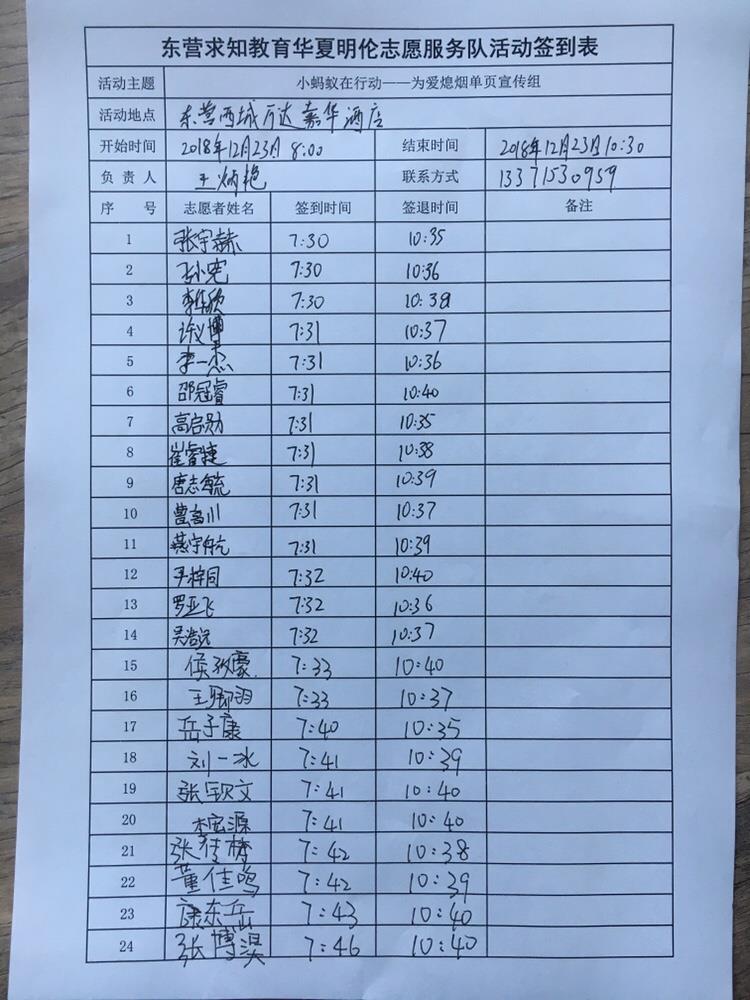 东营求知教育华夏明伦志愿服务队活动签到表
活动主题 小蚂蚁在行动——为爱熄烟单页宣传组
活动地点 东营西城万达嘉华酒店
开始时间 2018年12月23日 8:00 结束时间 2018年12月23日 10:30
负责人 王炳艳 联系方式 13371530959
序号 志愿者姓名 签到时间 签退时间 备注
1 张宇赫 7:30 10:35
2 7:30 10:36
3 李华欣 7:30 10:38
4 许议博 7:31 10:37
5 李一杰 7:31 10:36
6 邵冠睿 7:31 10:40
7 高启勋 7:31 10:35
8 崔睿捷 7:31 10:38
9 唐志毓 7:31 10:39
10 7:31 10:37
11 綦宇航 7:31 10:39
12 尹梓同 7:32 10:40
13 罗亚飞 7:32 10:36
14 吴浩远 7:32 10:37
15 侯致豪 7:33 10:40
16 王卿羽 7:33 10:37
17 岳子康 7:40 10:35
18 刘一冰 7:41 10:39
19 张钦文 7:41 10:40
20 李宏源 7:41 10:40
21 7:42 10:38
22 董佳鸣 7:42 10:39
23 康东岳 7:43 10:40
24 张博淏 7:46 10:40